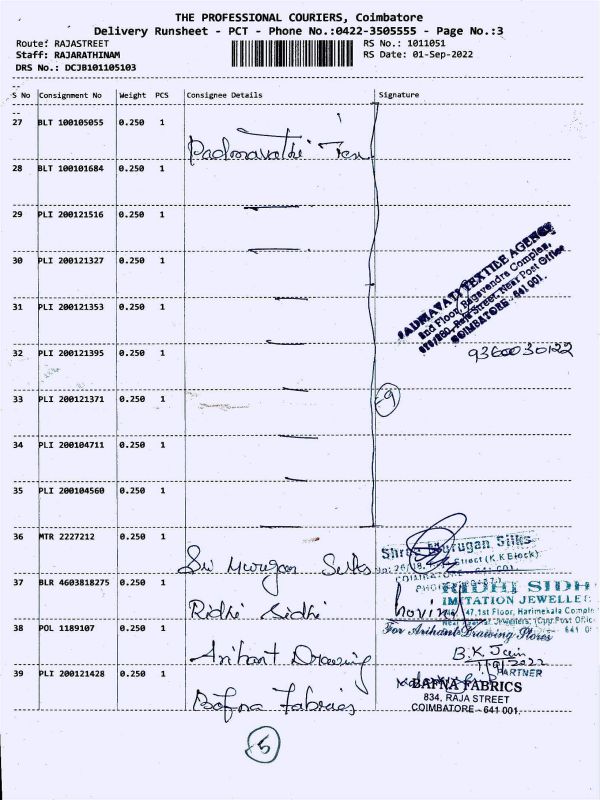 THE PROFESSIONAL COURIERS, Coimbatore
Delivery Runsheet - PCT - Phone No.:0422-3505555 - Page No.:3
Route: RAJASTREET RS No.: 1011051
Staff: RAJARATHINAM RS Date: 01-Sep-2022
DRS No.: DCJB101105103
S No Consignment No Weight PCS Consignee Details Signature
27 BLT 100105055 0.250 1
Padmavathi Tex
28 BLT 100101684 0.250 1
29 PLI 200121516 0.250 1
30 PLI 200121327 0.250 1
PADMAVATI TEXTILE AGENCY
2nd Floor, Ragavendra Complex,
Raja Street, Near Post Office
COIMBATORE - 641 001.
31 PLI 200121353 0.250 1
32 PLI 200121395 0.250 1
9360030122
33 PLI 200121371 0.250 1
9
34 PLI 200104711 0.250 1
35 PLI 200104560 0.250 1
36 MTR 2227212 0.250 1
Sri Murugan Silks
Shree Murugan Silks
Street (K K Block)
37 BLR 4603818275 0.250 1
RIDHI SIDH
IMITATION JEWELLE
Ridhi Sidhi
47,1st Floor, Harimekala Comple
38 POL 1189107 0.250 1
For Arihant Drawing Stores
Arihant Drawing
B.K. Jain
1/9/2022
PARTNER
39 PLI 200121428 0.250 1
Bafna Fabrics
BAFNA FABRICS
834, RAJA STREET
COIMBATORE - 641 001.
5